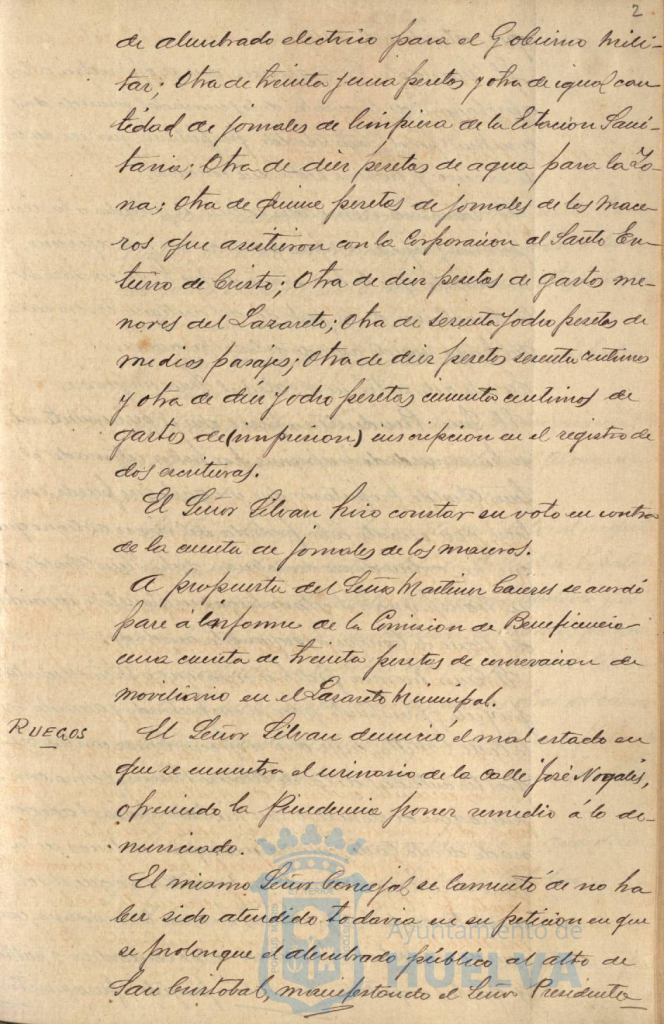 2
de alumbrado electrico para el Gobierno Mili-
tar; Otra de treinta y una pesetas y otra de igual can-
tidad de jornales de limpieza de la Estacion Sani-
taria; Otra de diez pesetas de agua para la Zo-
na; Otra de quince pesetas de jornales de los mace-
ros que asistieron con la Corporacion al Santo En-
tierro de Cristo; Otra de diez pesetas de gastos me-
nores del Lazareto; Otra de sesenta y ocho pesetas de
medios pasajes; Otra de diez pesetas sesenta centimos
y otra de diez y ocho pesetas cincuenta centimos de
gastos de (impresion) inscripcion en el registro de
dos escrituras.
El Señor Silvan hizo constar su voto en contra
de la cuenta de jornales de los maceros.
A propuesta del Señor Martinez Caceres se acordó
pase á informe de la Comision de Beneficencia
una cuenta de treinta pesetas de conservacion de
moviliario en el Lazareto Municipal.
RUEGOS
El Señor Silvan denunció el mal estado en
que se encuentra el urinario de la calle José Nogales,
ofreciendo la Presidencia poner remedio á lo de-
nunciado.
El mismo Señor Concejal, se lamentó de no ha
ber sido atendido todavia en su peticion en que
se prolongue el alumbrado público al alto de
San Cristobal, manifestando el Señor Presidente
Ayuntamiento de
HUELVA